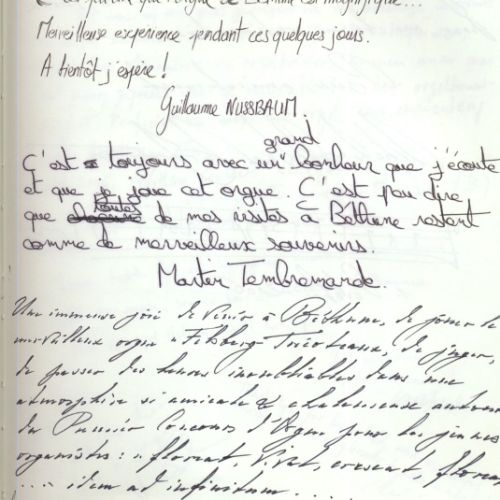 Merveilleuse expérience pendant ces quelques jours.
A bientôt j'espère !
Guillaume NUSSBAUM.
grand
C'est toujours avec un bonheur que j'écoute
et que je joue cet orgue. C'est peu dire
toutes
que de mes visites à Béthune restent
comme de merveilleux souvenirs.
Tembremande.
Une immense joie de venir à Béthune, de jouer le
merveilleux orgue de juger,
de passer des heures inoubliables dans une
atmosphère si amicale & chaleureuse autour
du Premier Concours d'Orgue pour les jeunes
organistes : "florent, vivat, crescat, floreat
.... idem ad infinitum ....